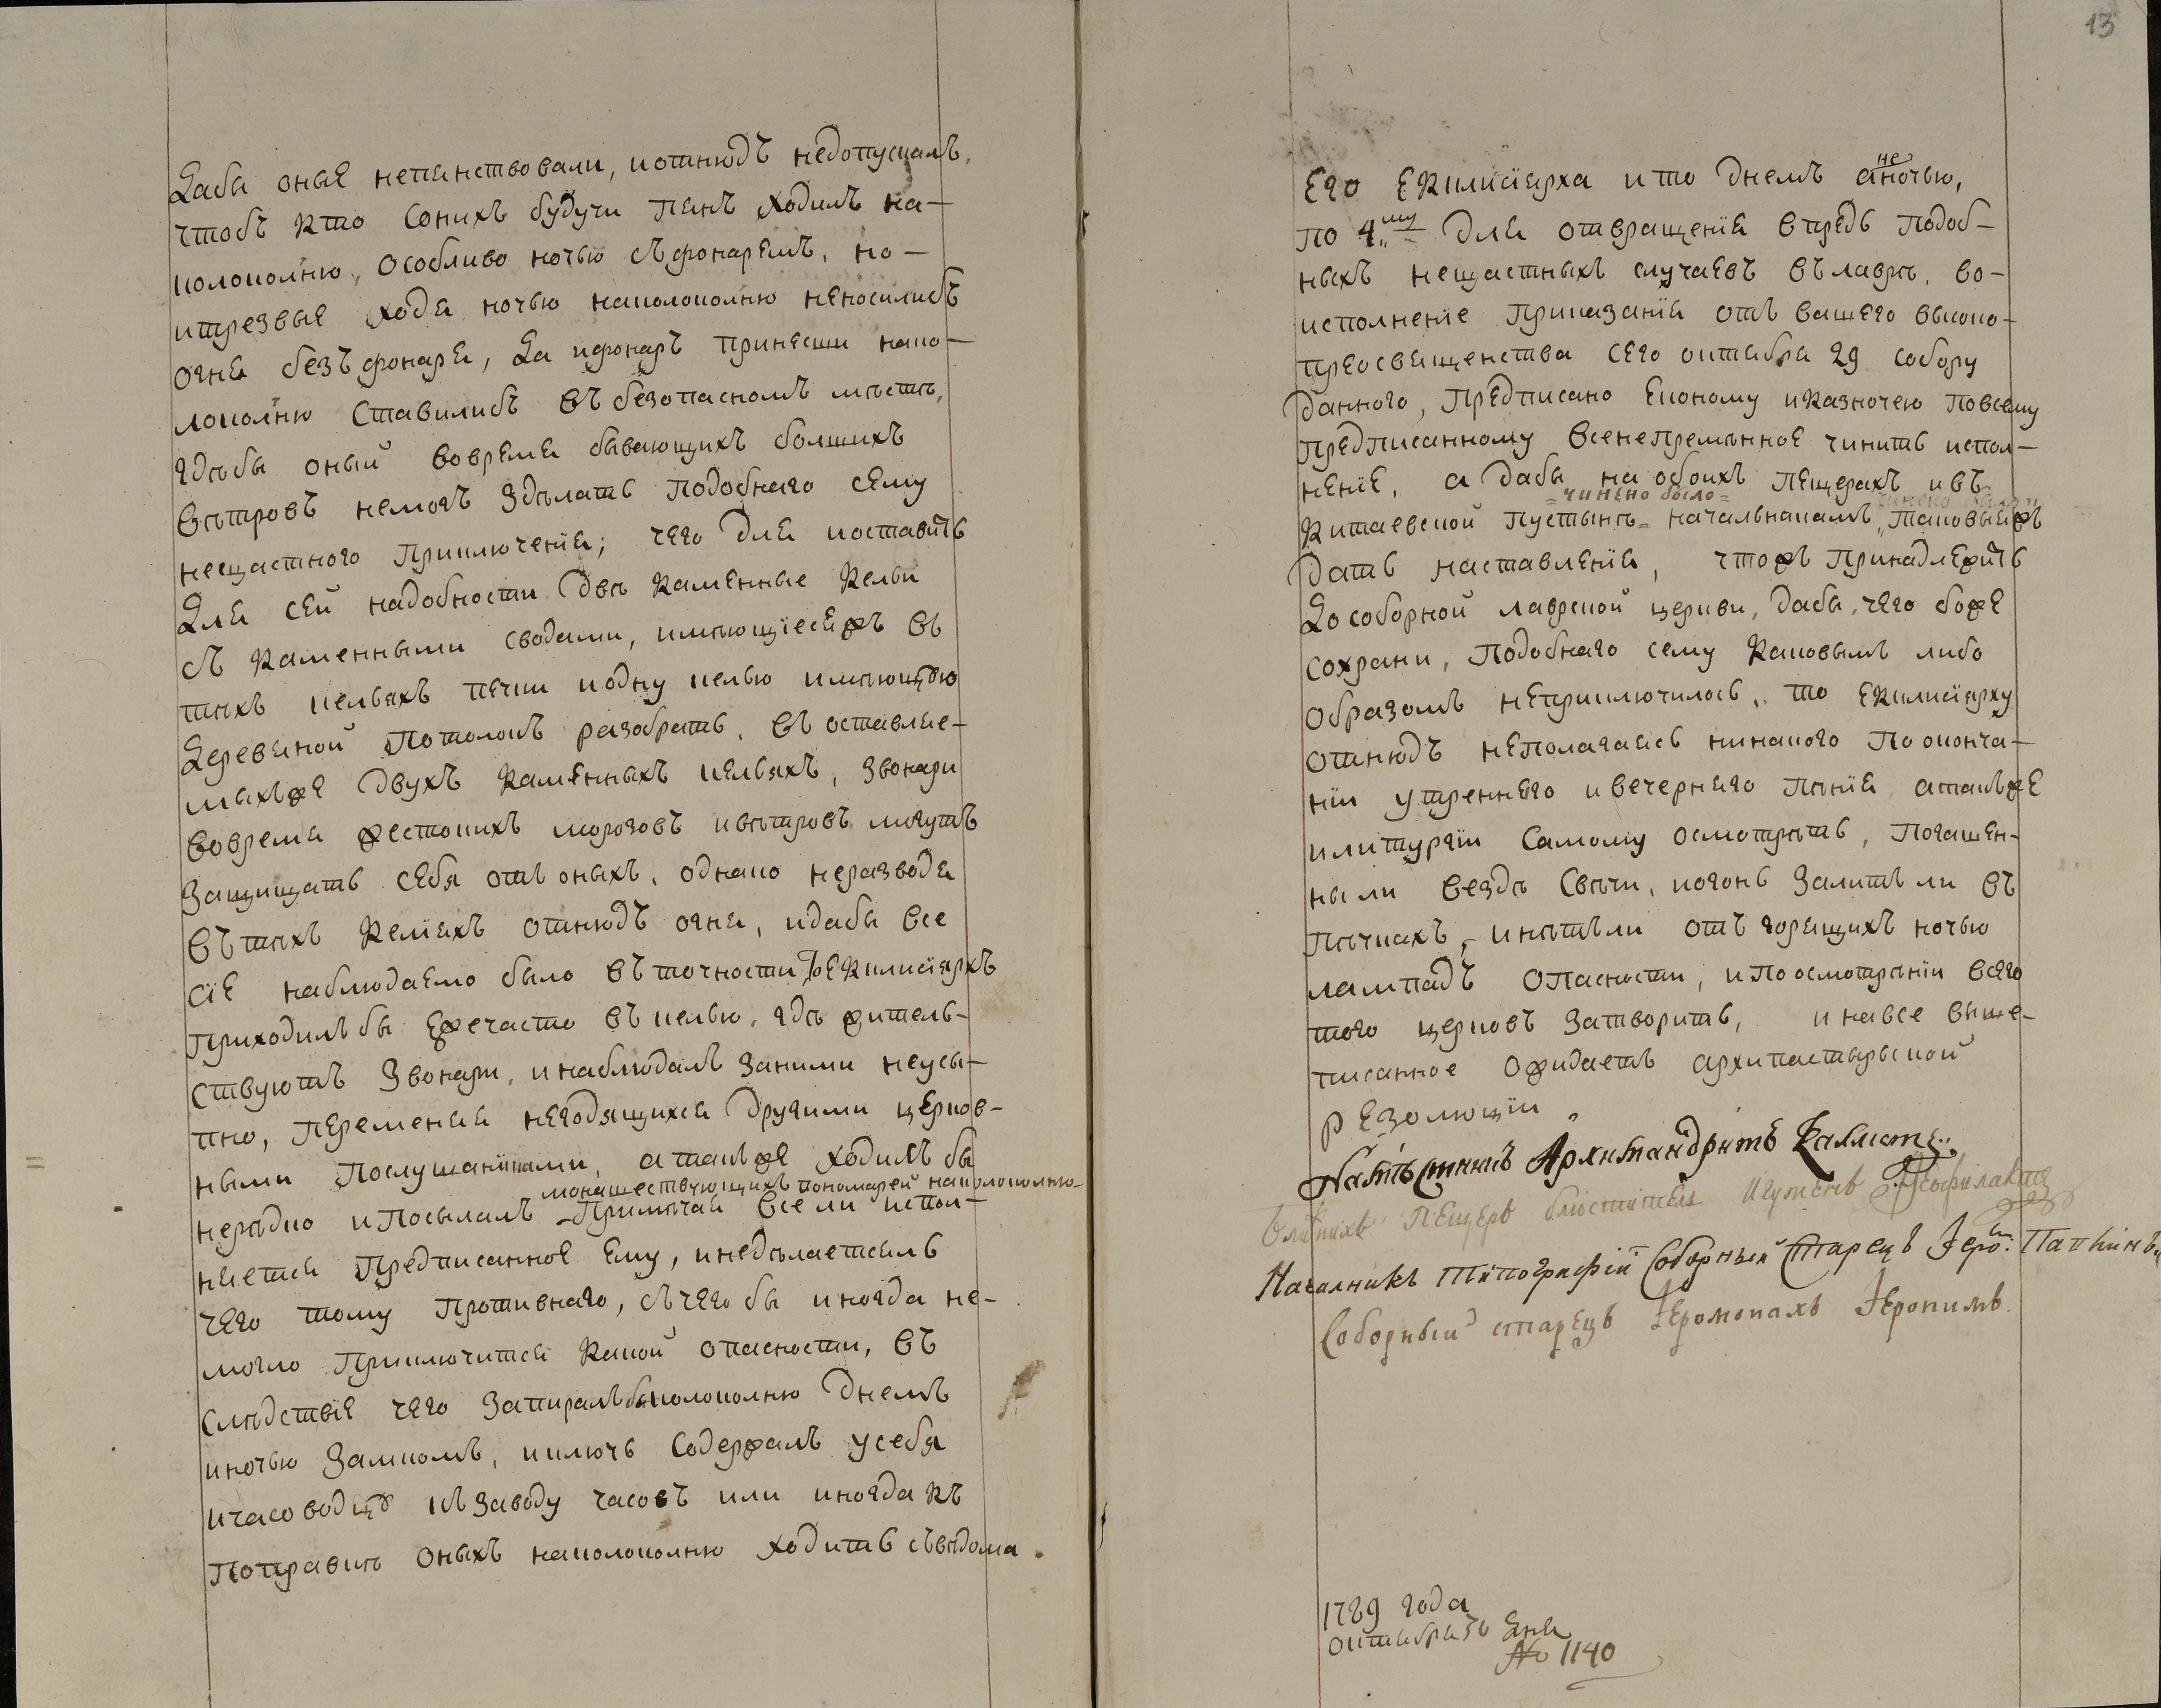 Дабы оные непянствовали, иотнюдъ недопускалъ,
чтобъ кто сонихъ будучи пянъ ходилъ на-
колоколню, особливо ночью съфонаремъ, но-
итрезвые ходя ночью наколоколню неносилибъ
огня безъ фонаря, Да ифонаръ принесши нако-
локолню ставилибъ въ безопасномъ мѣстѣ,
гдѣбы оный вовремя бывающихъ болшихъ
вѣтровъ немогъ здѣлать подобнаго сему
нещастного приключения; чего для иоставить
Для сей надобности двѣ каменные кельи
съ каменными сводами, имѣющїесяжъ въ
тѣхъ кельяхъ печки иодну келью имѣющую
Деревяной потолокъ разобрать, въ оставляе-
мыхъже двухъ каменныхъ кельяхъ, звонари
вовремя жестокихъ морозовъ ивѣтровъ могутъ
защищать себя отъ оныхъ, однако неразводя
въ тѣхъ келїяхъ отнюдъ огня, идабы все
сїе наблюдаемо было въ точности то екклисїархъ
приходилъбы ежечасто въ келью, гдѣ жителъ-
ствуютъ звонари, инаблюдалъ заними неусы-
пно, переменяя негодящихся другими церков-
ными послушанїиками, атакъже ходилъ бы
монашествующихъ пономарей наколоколню
нерѣдко ипосылалъ примѣчая все ли испол-
няется предписанное ему, инедѣлаетсяль
чего тому противнаго, съчего бы иногда не-
могло приключится какой опасности, въ
слѣдствїе чего запиралъбы колоколню днемъ
иночью замкомъ, иключъ содержалъ усебя
ичасоводцу къ заводу часовъ или иногда къ
поправкѣ оныхъ наколоколню ходить съвѣдома
13
его екклисїарха ито днемъ а не ночью,
по 4му для отвращенїя впредь подоб-
ныхъ нещастныхъ случаевъ въ лаврѣ. во-
исполненїе приказанїя отъ вашего высоко-
преосвященства сего октября 29 собору
данного, предписано економу иказначею повсему
предписанному всенепременное чинить испол-
ненїе, а дабы на обоихъ пещерахъ ивъ
чинено было
китаевской пустынѣ началникамъ, таковыежъ
дать наставленїя, чтожъ принадлежитъ
До соборной лаврской церкви, дабы, чего боже
сохрани, подобнаго сему каковымъ либо
образомъ неприключилось, то екклисїарху
отнюдъ неполагаясь нинакого по оконча-
нїи утреннѣго ивечерняго пѣнїя, атакъже
илитургїи самому осмотрѣть, погашен-
ныли вездѣ свѣчи, иогонь залитъли въ
пѣчкахъ, инѣтъли отъ горящихъ ночью
лампадъ опасности, ипоосмотрѣнїи всего
того церковъ затворить, инавсе выше-
писанное ожидаетъ архипастырской
резолюцїи
Намѣстникъ Архимандритъ Каллистъ.
Ближнихъ пещеръ блюститель Игуменъ Ѳеофилактъ
Началникъ Тѵпографїи Соборный Старецъ Iеро:
Соборный старецъ Iеромонахъ Iеронимъ.
1789 года
октября 30 дня
№ 1140